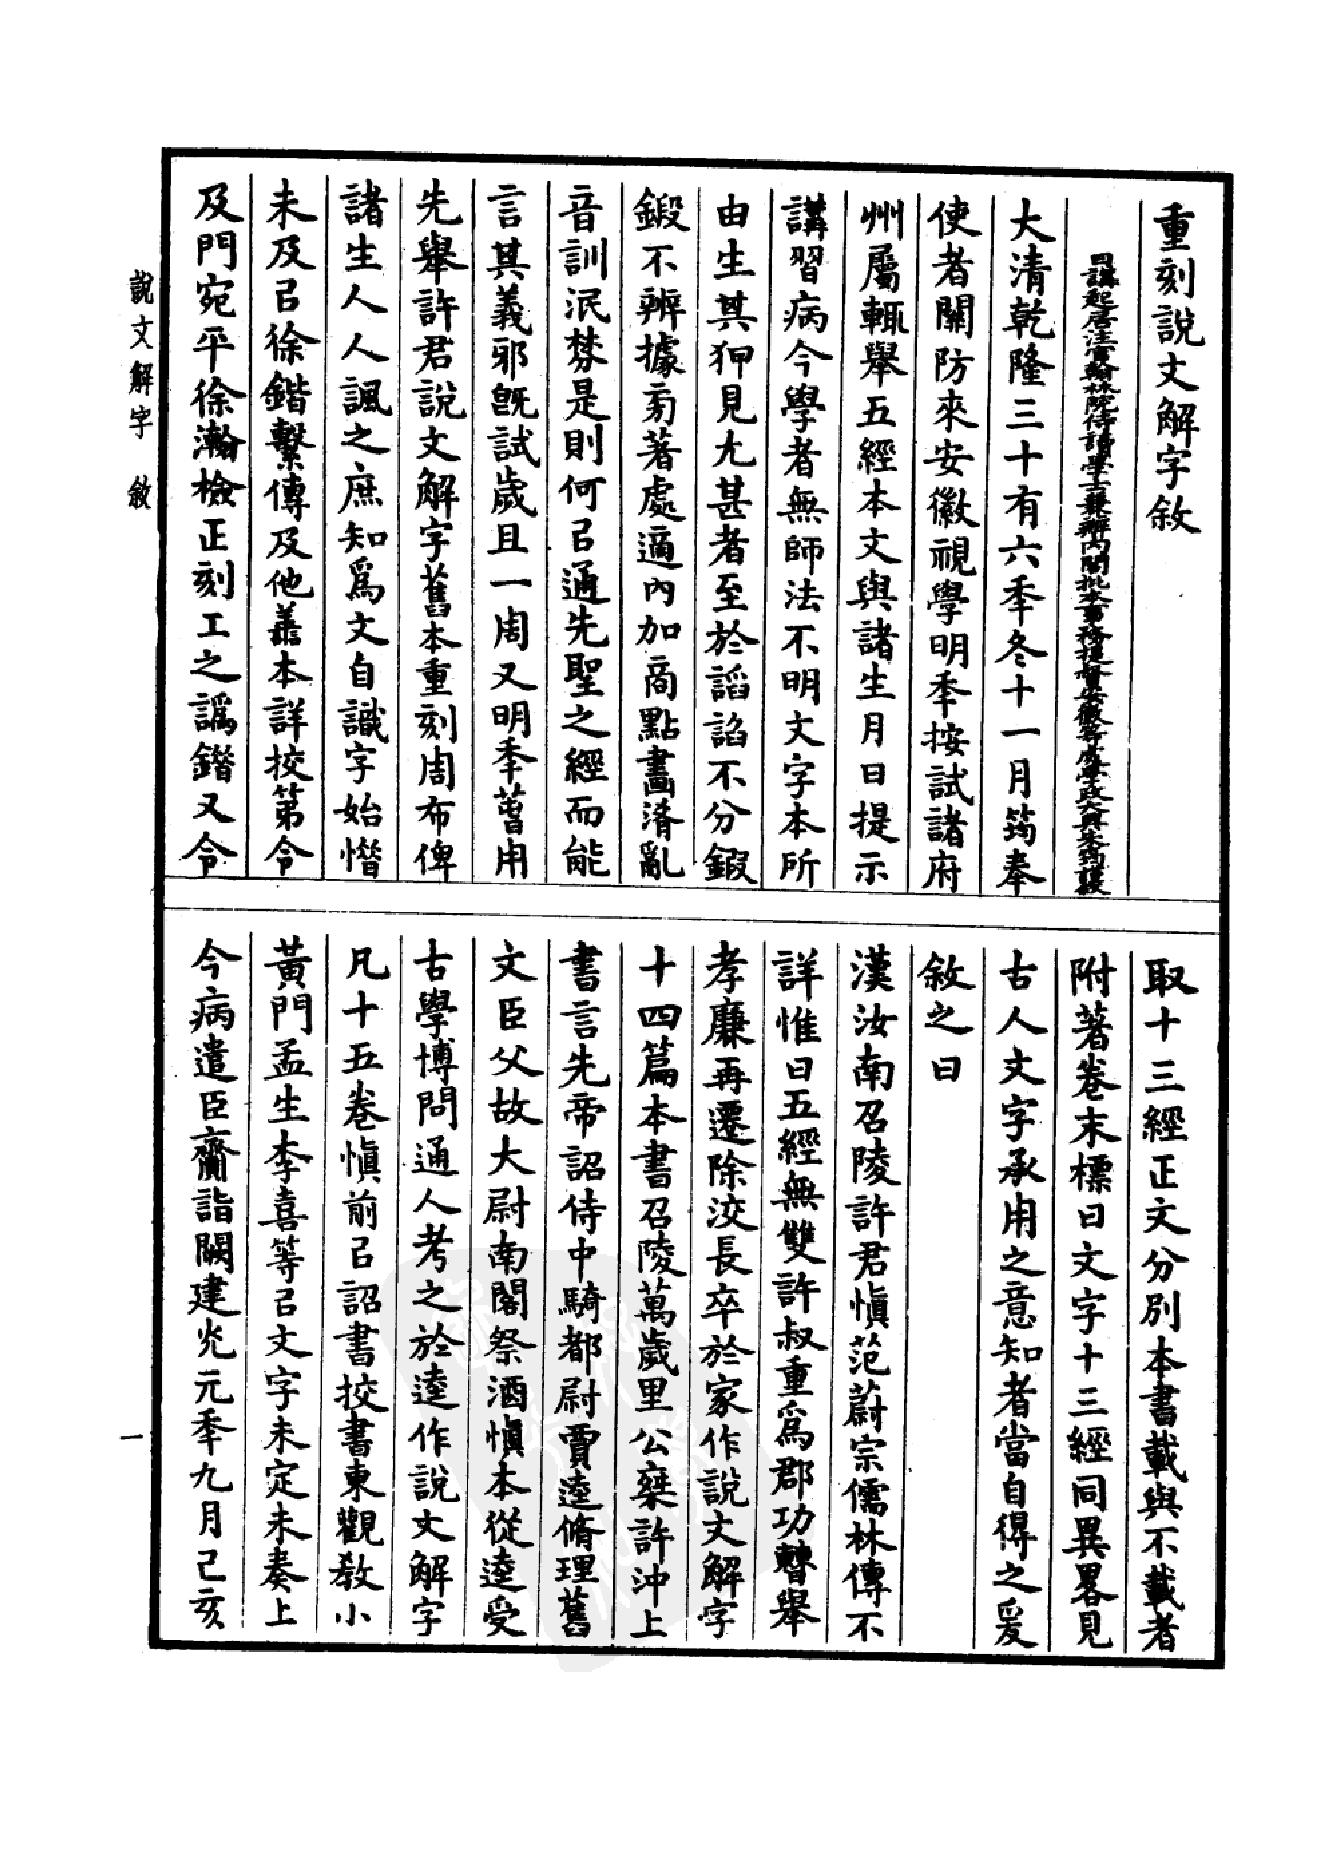 重刻說文解字敘
日講起居注官翰林院侍讀學士兼辦內閣批本事務提督安徽等處學政大興朱筠撰
大清乾隆三十有六秊冬十一月筠奉
使者關防來安徽視學明秊按試諸府
州屬輒舉五經本文與諸生月日提示
講習病今學者無師法不明文字本所
由生其狎見尤甚者至於謟諂不分鍜
鍛不辨據旁著處適內加商點畫淆亂
音訓泯棼是則何㠯通先聖之經而能
言其義邪旣試歲且一周又明秊䈞用
先舉許君說文解字舊本重刻周布俾
諸生人人諷之庶知爲文自識字始惜
未及㠯徐鍇繫傳及他善本詳挍第令
及門宛平徐瀚檢正刻工之譌鍇又令
取十三經正文分別本書載與不載者
附著卷末標曰文字十三經同異畧見
古人文字承用之意知者當自得之爰
敘之曰
漢汝南召陵許君愼范蔚宗儒林傳不
詳惟曰五經無雙許叔重爲郡功曹舉
孝廉再遷除洨長卒於家作說文解字
十四篇本書召陵萬歲里公乘許沖上
書言先帝詔侍中騎都尉賈逵脩理舊
文臣父故大尉南閣祭酒愼本從逵受
古學博問通人考之於逵作說文解字
凡十五卷愼前㠯詔書挍書東觀教小
黃門孟生李喜等㠯文字未定未奏上
今病遣臣齎詣闕建光元秊九月己亥
說文解字 敘
一